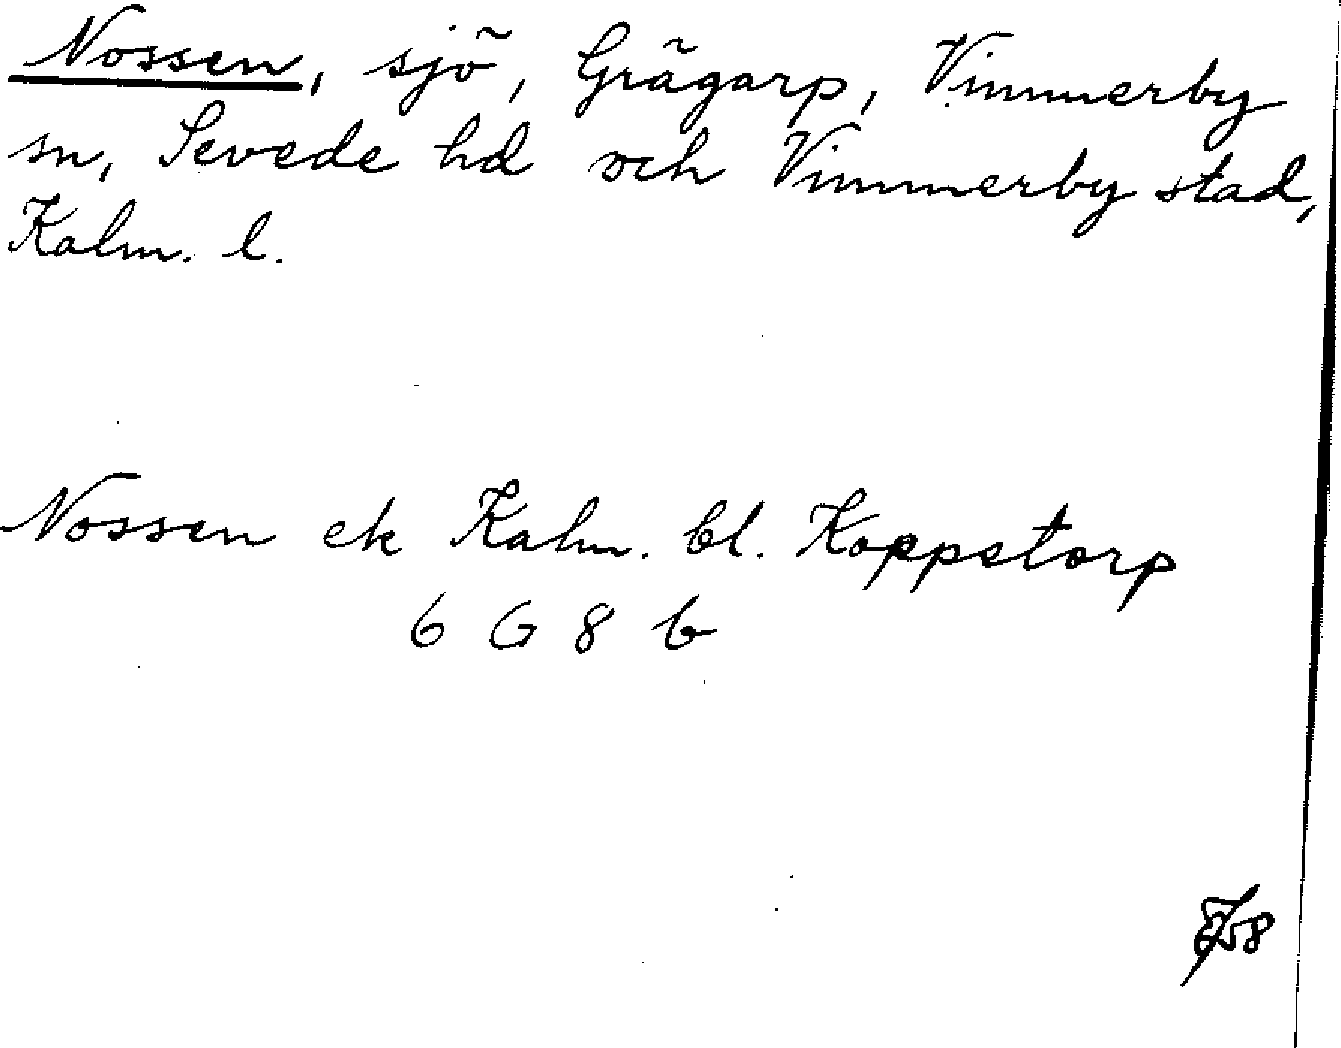 Nossen, sjö, Grågarp, Vimmerby
sn, Sevede hd och Vimmerby stad,
Kalm. l.
Nossen ek Kalm. bl. Koppetorp
6 G 8 b